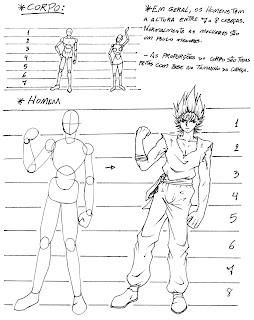 * CORPO:
* EM GERAL, OS HOMENS TEM
A ALTURA ENTRE 7 A 8 CABEÇAS.
NORMALMENTE AS MULHERES SÃO
UM POUCO MENORES.
- AS PROPORÇÕES DO CORPO SÃO TODAS
FEITAS COM BASE NO TAMANHO DA CABEÇA.
1
2
3
4
5
6
7
* HOMEM
1
2
3
4
5
6
7
8